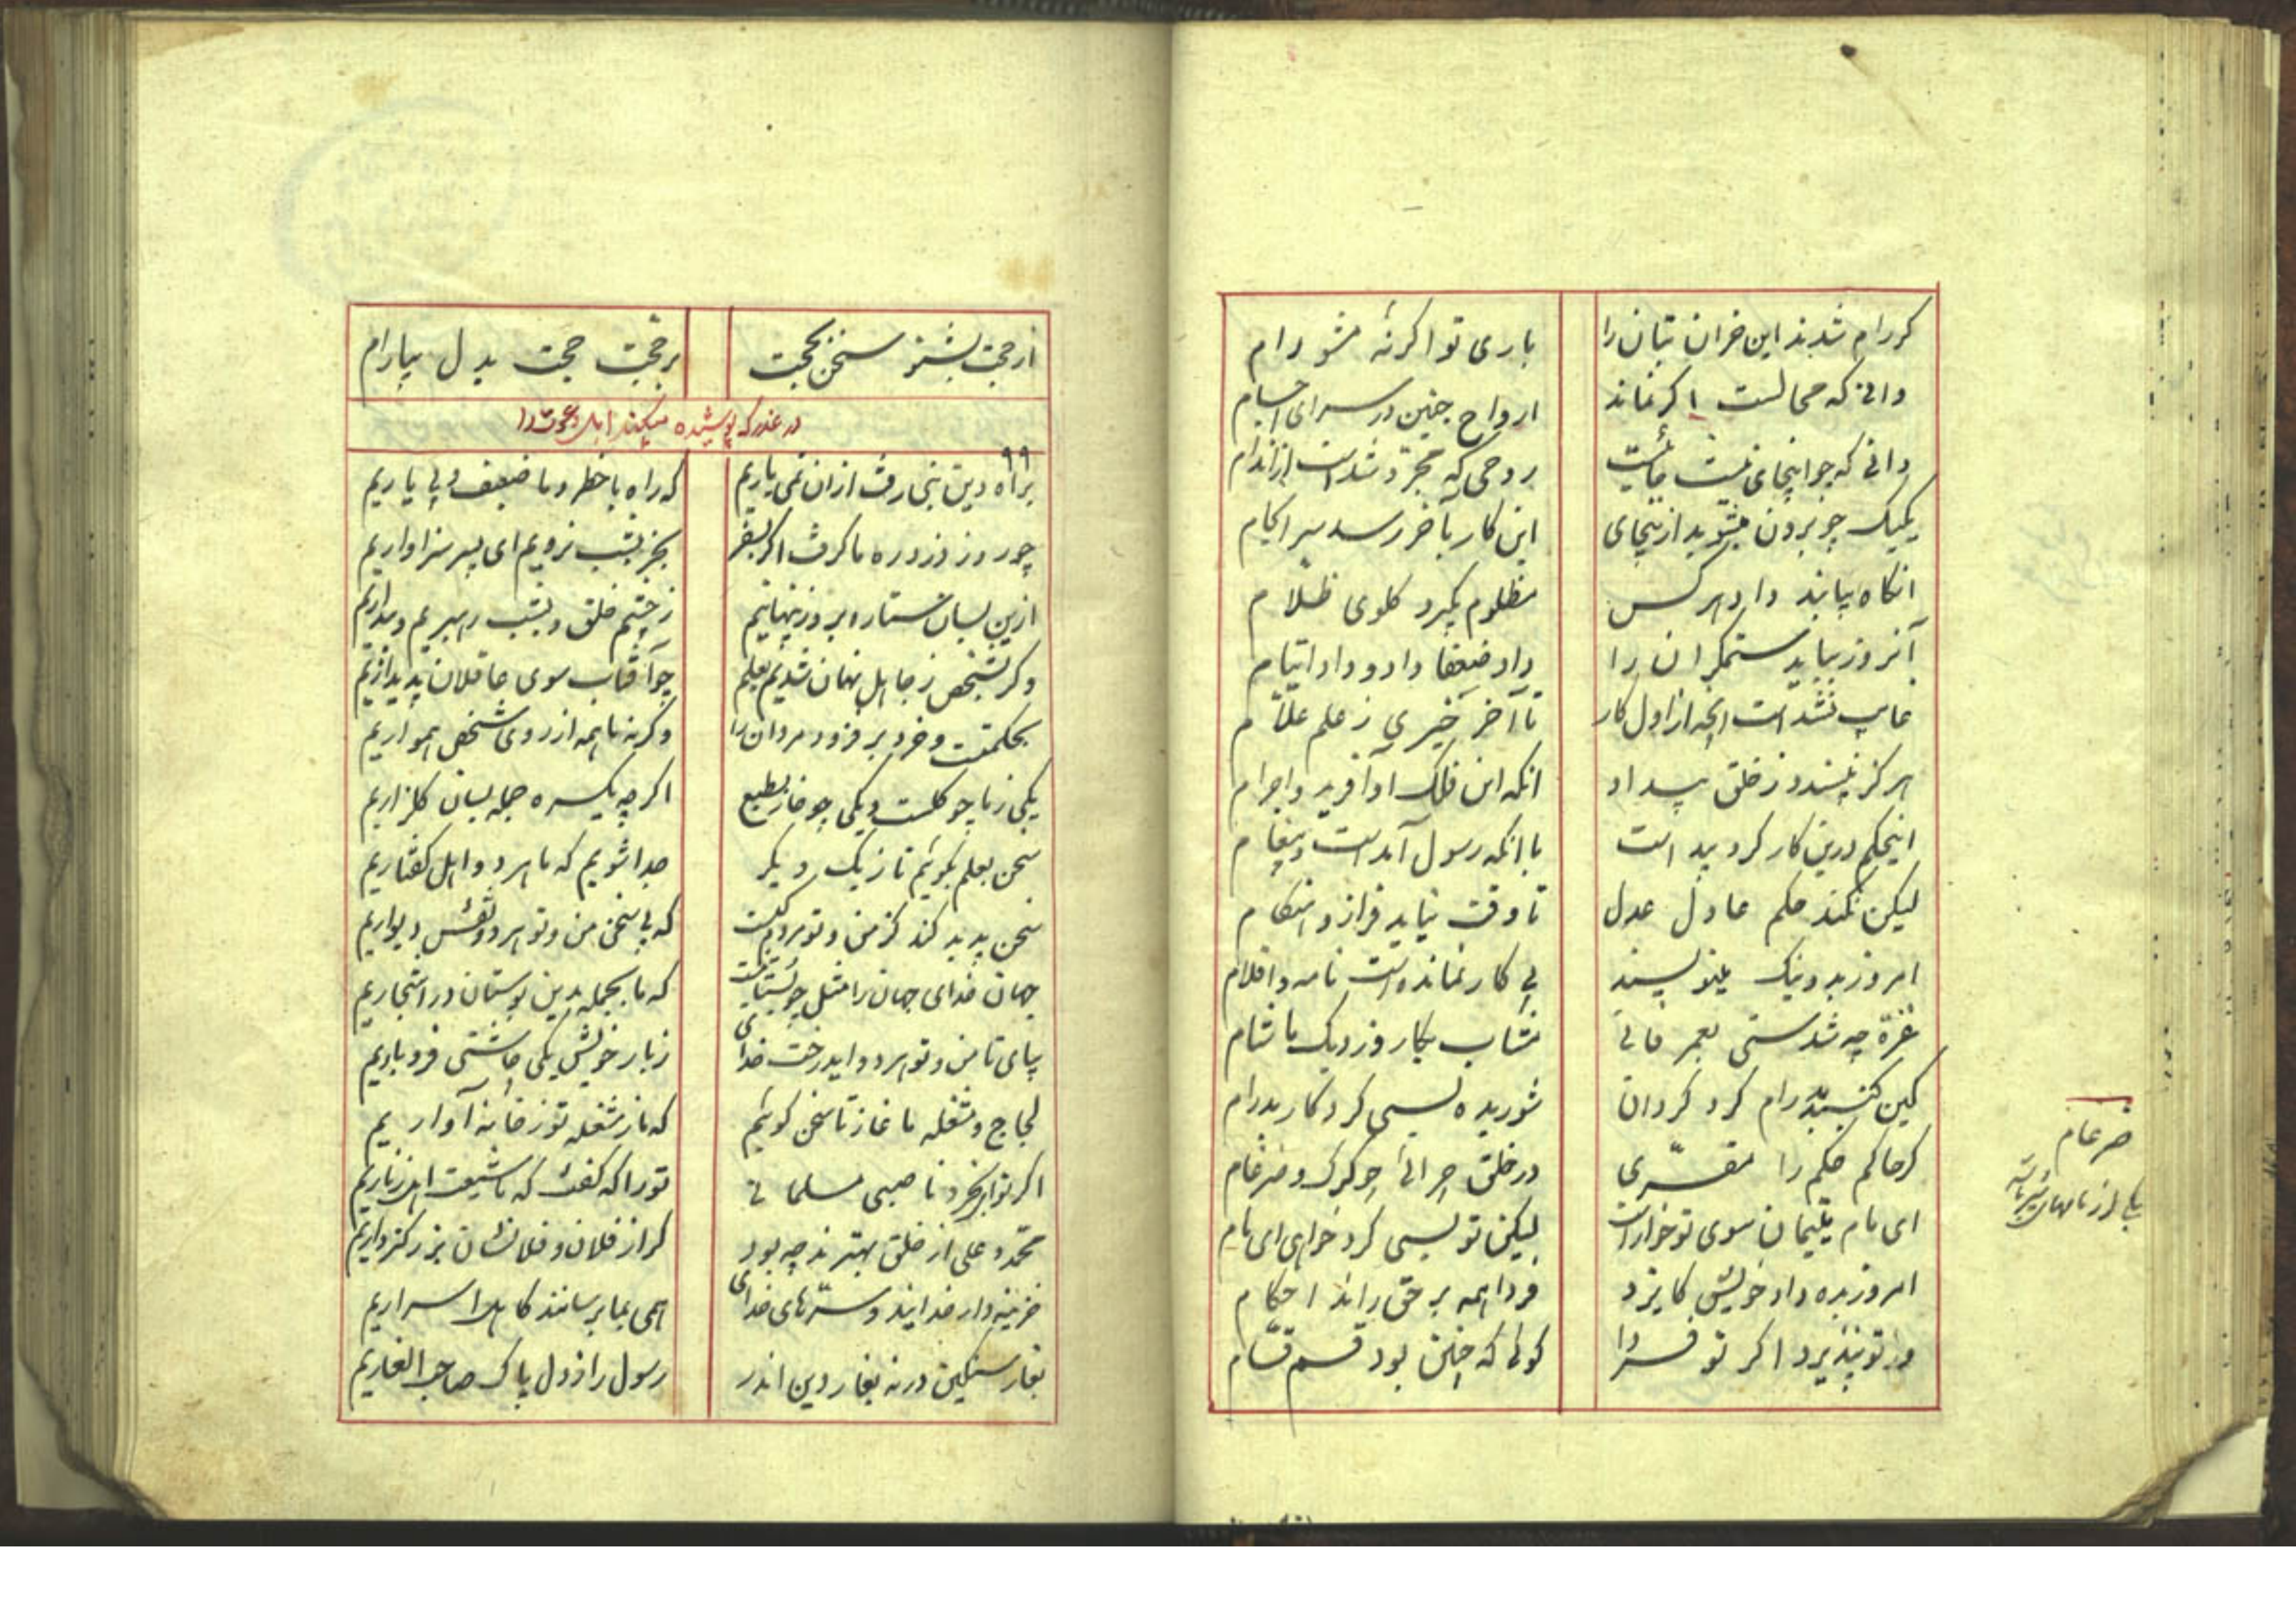 کر رام شدند این خران تبان را باری تو اکر نه مشو رام
دانی که محالست اکر نماند ارواح جنین در سرای اجسام
دانی که جو اینجای نیست جائیست روحی که مجرد شدست از اندام
یکیک چو برون میشوید ازینجای این کار بآخر رسد سرانجام
انکاه بیابند داد هر کس مظلوم بکیرد کلوی ظلام
آنروز بیابد ستمکران را داد ضعفا داد و داد ایتام
غایب نشدست ایچ از اول کار تا آخر چیزی ز علم علام
هرکز نپسندد ز خلق بیداد انکه این فلک او آفرید و اجرام
اینحکم درین کار کرد بیداست با انکه رسول آمدست و پیغام
لیکن نکند حکم عادل عدل تا وقت نیاید فراز و هنکام
امروز بد و نیک مینویسند بی کار نماندست نامه و اقلام
غره چه شدستی بعمر فانی مشتاب بکار و زدیک ما شام
کین کنبد بدرام کرد کردان شوریده بسی کرد کار بدرام
کر حاکم حکم را مقری در خلق چرائی چو کرک و ضرغام
ای مام یتیمان سوی تو خوارست لیکن تو بسی کرد خواهی ای مام
امروز بده داد خویش کایزد فردا همه بر حق راند احکام
ور تو بپذیرد اکر تو فردا کوئی که چنین بود قسم قسام
ضرغام
یکی از نامهای شیر است
از حجت بشنو سخن بحجت بر حجت حجت بدل بیارام
در عذر که پوشیده میکند اهل دعوت را
۹۹
براه دین نبی رفت ازان نمی یاریم که راه با خطر و ما ضعیف و بی یاریم
چو روز دزد ره ما کرفت اکر بسفر بجز بشب نرویم ای پسر سزاواریم
ازین بسان ستاره بروز پنهانیم ز چشم خلق و بشب رهبریم و بیداریم
وکر بشخص ز جاهل نهان شدیم بعلم چو آفتاب سوی عاقلان پدیداریم
بحکمتست و خرد بر فزود مردان را وکرنه ما همه از روی شخص همواریم
یکی ز ما چو کلست و یکی چو خار بطبع اکر چه یکسره جمله بسان کلزاریم
سخن بعلم بکوئیم تا ز یک دیکر جدا شویم که ما هر دو اهل کفتاریم
سخن پدید کند کز من و تو مردم کیست که بی سخن من و تو هر دو نقش دیواریم
جهان خدای جهان را مثل چو بستانیست که ما بجمله بدین بوستان در اشجاریم
بیای تا من و تو هر دو اید رخت خدای ز بار خویش یکی چاشنی فرو باریم
لجاج و مشغله ماغاز تا سخن کوئیم که ما ز مشغله تو ز خانه آواریم
اکر تو ای بخرد ناصبی مسلمانی تو را که کفت که ما شیعت اهل زناریم
محمد و علی از خلق بهترند چه بود کر از فلان و فلانشان بزرکتر داریم
خزینه دار خدایند و سرهای خدای همی بما برسانند کاهل اسراریم
بغار سنکین در نه بغار دین اندر رسول را ز دل پاک صاحب الغاریم